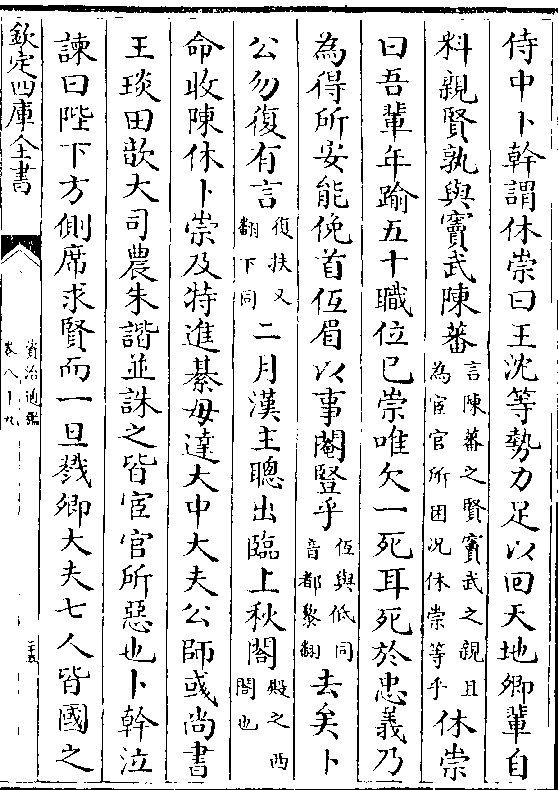 侍中卜幹謂休崇曰王沈等勢力足以回天地卿輩自
料親賢孰與竇武陳蕃言陳蕃之賢竇武之親且為宦官所困况休崇等乎休崇
曰吾輩年踰五十職位已崇唯欠一死耳死於忠義乃
為得所安能俛首仾眉以事閹豎乎仾與低同音都黎翻去矣卜
公勿復有言復扶又翻下同二月漢主聰出臨上秋閣殿之西閣也
命收陳休卜崇及特進綦毋達大中大夫公師彧尚書
王琰田歆大司農朱諧並誅之皆宦官所惡也卜幹泣
諫曰陛下方側席求賢而一旦戮卿大夫七人皆國之
欽定四庫全書
資治通鑑
卷八十九